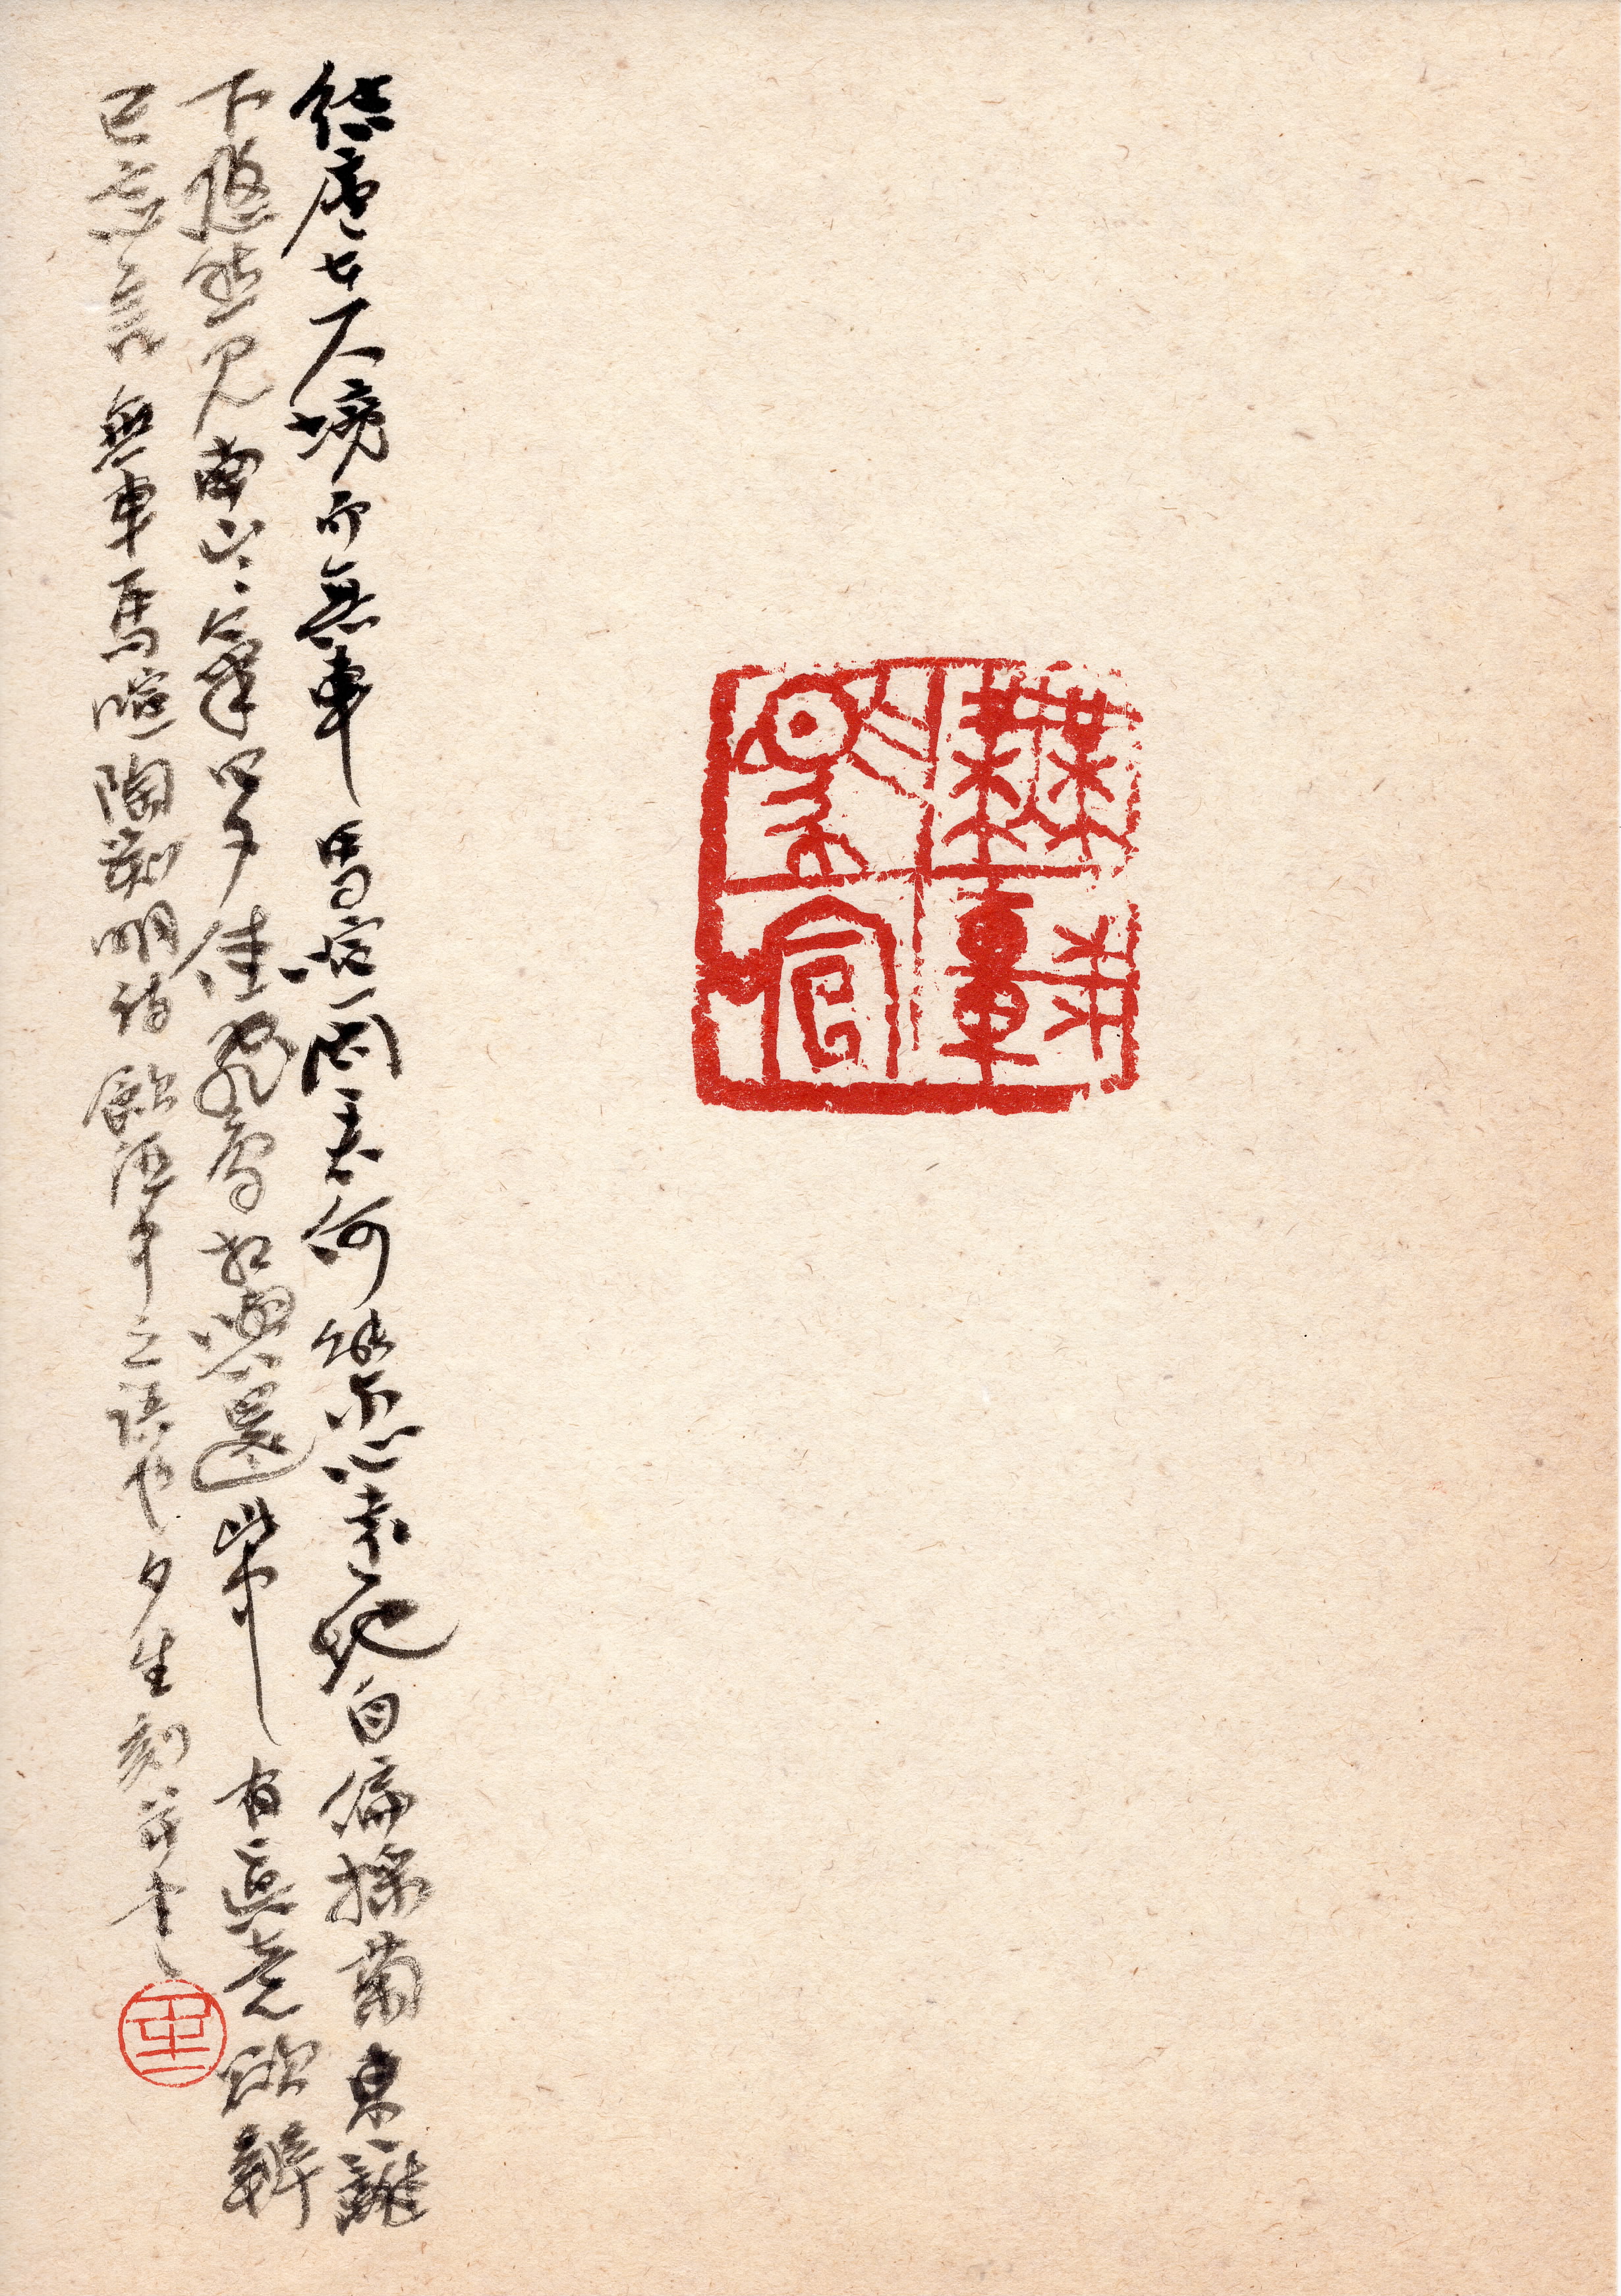 無車
馬喧
結廬在人境而無車馬喧問君何能爾心遠地自偏採菊東籬
下悠然見南山〻氣日夕佳飛鳥相與還此中有真意欲辨
已忘言 無車馬喧陶淵明詩飲酒中之語也夕生刻并書